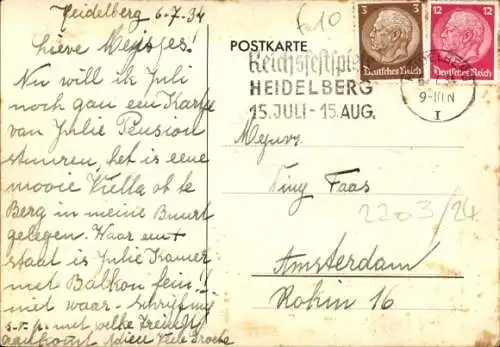 Heidelberg 6-7.34
Lieve Meisjes!
Nu will ik Juli
noch gau ein Karte
van Julie Pension
sturen, het is eene
mooie Villa
Berg in meine Buurt
gelegen. Waar ein +
staat is Julie Kamer
met Balkon fein!
niet waar
met welke
Adieu Viele
f 10
POSTKARTE
3 3
Deutsches Reich
12 12
Deutsches Reich
Reichsfestspiele
HEIDELBERG
15. JULI - 15. AUG.
I
Mejuvr.
Tiny Faas
2203/24
Amsterdam
Rokin 16